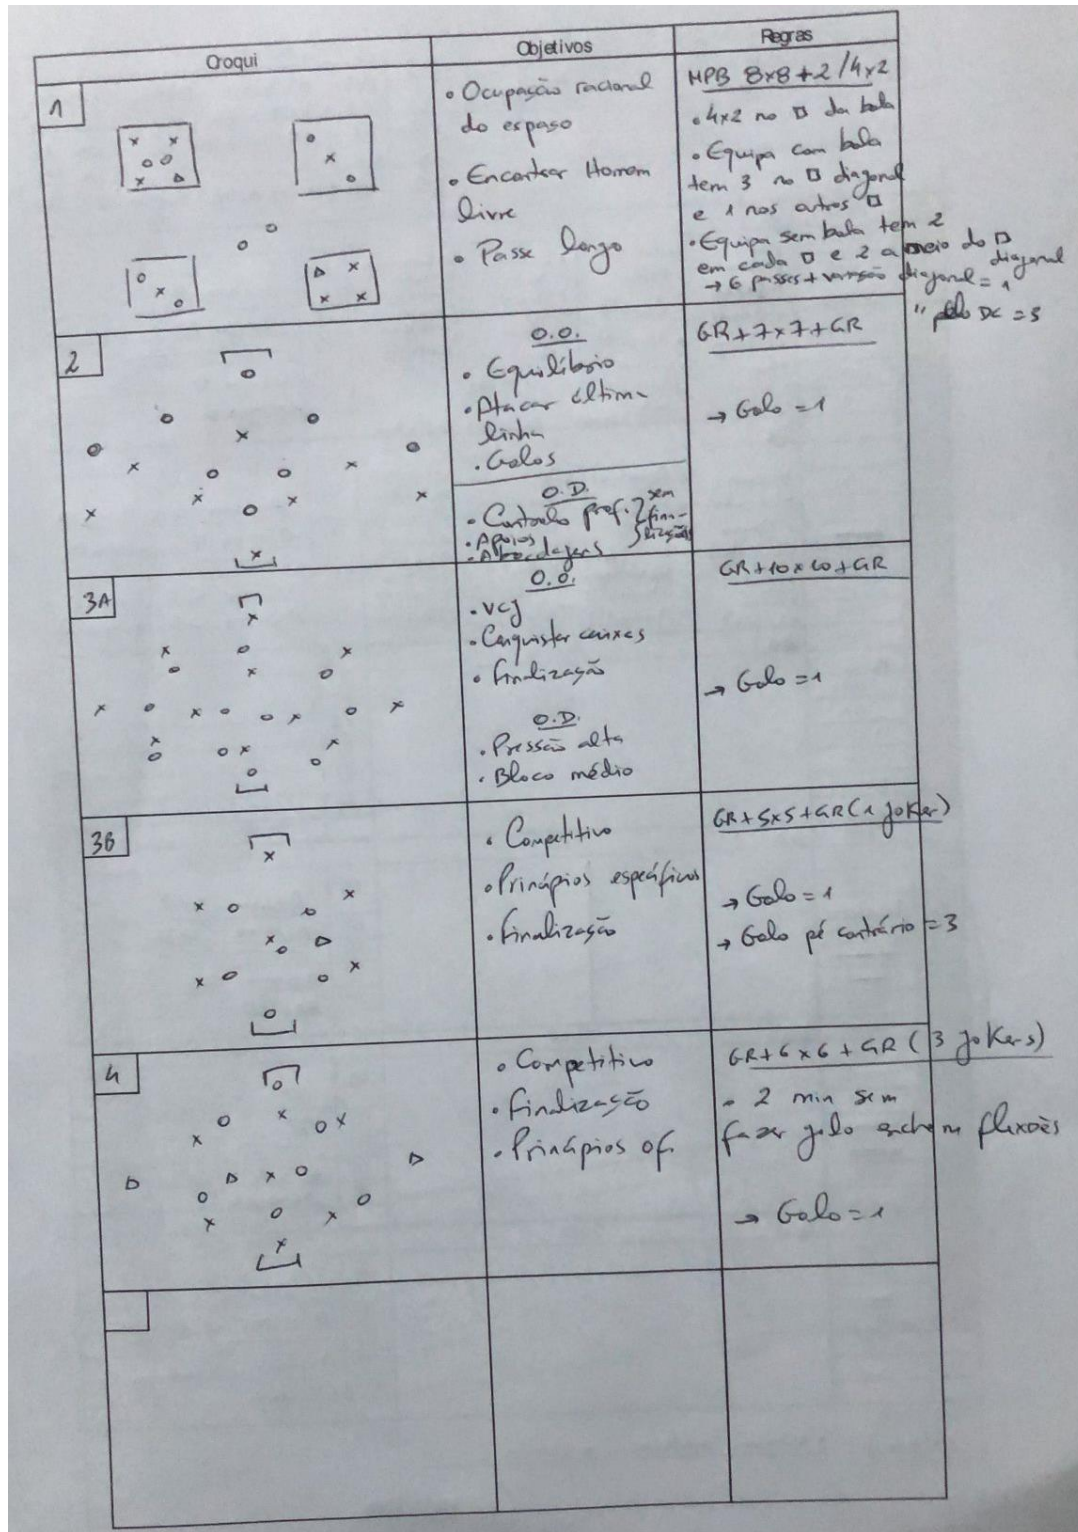 Croqui
Objetivos
Regras
1
• Ocupação racional
do espaso
• Encontrar Homem
livre
• Passe longo
MPB 8x8+2/4x2
• 4x2 no □ da bola
• Equipa com bola
tem 3 no □ diagonal
e 1 nos outros □
• Equipa sem bola tem 2
em cada □ e 2 a meio do □
diagonal
→ 6 passes + variação diagonal = 1
" pelo DC = 3
2
O.O.
• Equilíbrio
• Atacar última
linha
• Golos
O.D.
• Controlo prof.
• Apoios
• Abordagens
sem
fina-
lização
GR+7x7+GR
→ Golo = 1
3A
O.O.
• VCJ
• Conquistar caixas
• finalização
O.D.
• Pressão alta
• Bloco médio
GR+10x10+GR
→ Golo = 1
3B
• Competitivo
• Princípios específicos
• finalização
GR+5x5+GR (1 joker)
→ Golo = 1
→ Golo pé contrário = 3
4
• Competitivo
• finalização
• Princípios of.
GR+6x6+GR (3 jokers)
- 2 min sem
fazer golo enchem flexões
→ Golo = 1